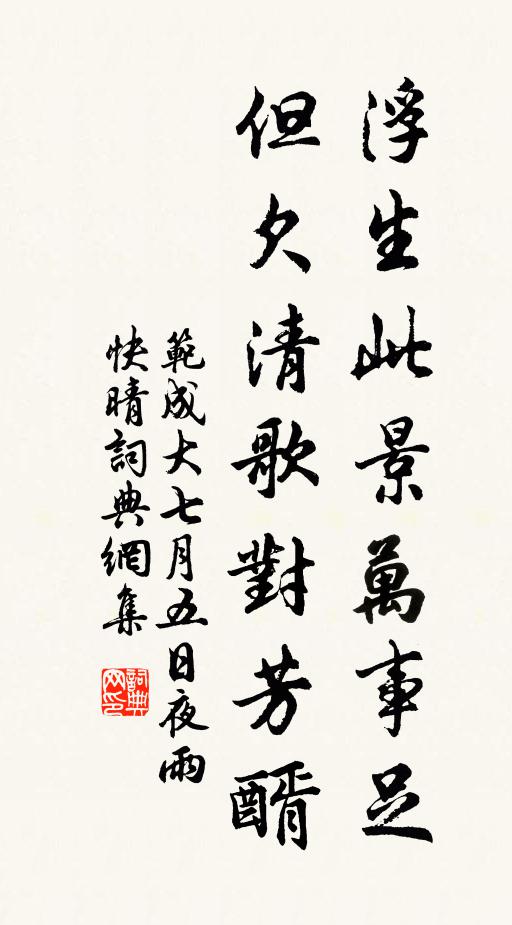 浮生此景萬事足
但欠清歌對芳醑
範成大七月五日夜雨
快晴詞典網集
詞典网印